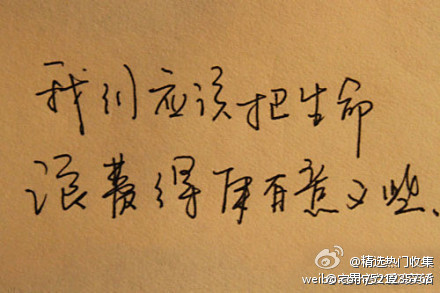 我们应该把生命
浪费得更有意义些.
@精选热门收集